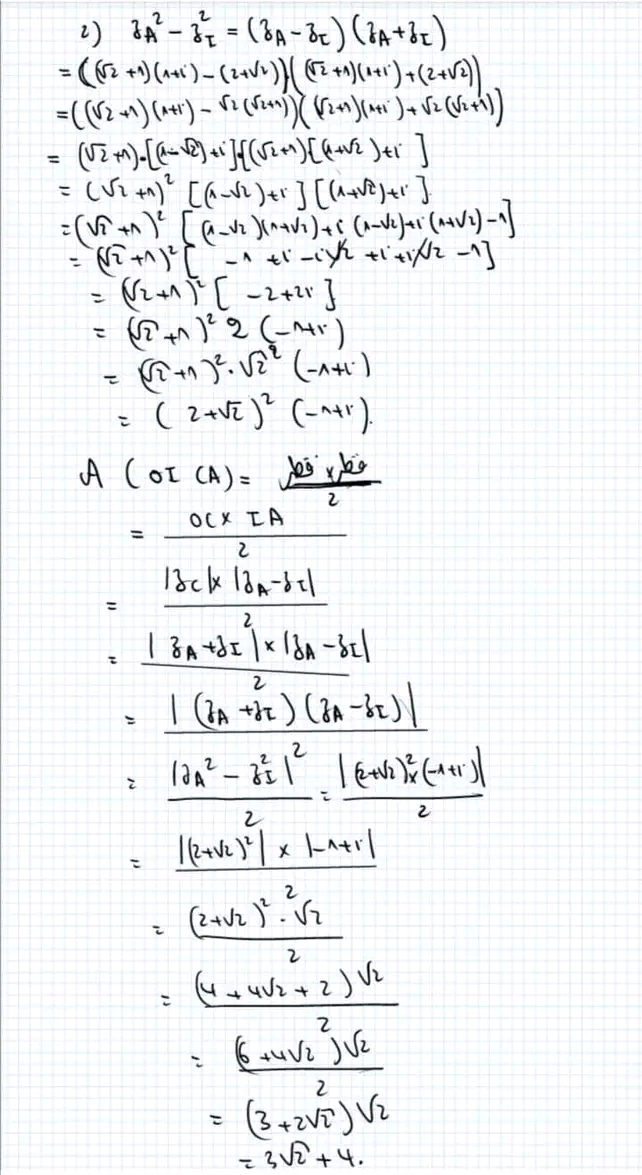 2) z_A² - z_I² = (z_A - z_I)(z_A + z_I)
= ((√2 + 1)(1+i) - (2+√2))((√2 + 1)(1+i) + (2+√2))
= ((√2 + 1)(1+i) - √2(√2+1))((√2+1)(1+i) + √2(√2+1))
= (√2+1)·[(1-√2)+i]·(√2+1)[(1+√2)+i]
= (√2 + 1)² [(1-√2)+i][(1+√2)+i]
= (√2 + 1)² [(1-√2)(1+√2)+i(1-√2)+i(1+√2)-1]
= (√2 + 1)² [-1 + i - i√2 + i + i√2 - 1]
= (√2+1)² [-2+2i]
= (√2 + 1)² 2 (-1+i)
= (√2 + 1)² · √2² (-1+i)
= (2+√2)² (-1+i).
A (OICA) = قطر × قطر / 2
= OC × IA / 2
= |z_C| × |z_A - z_I| / 2
= |z_A + z_I| × |z_A - z_I| / 2
= |(z_A + z_I)(z_A - z_I)| / 2
= |z_A² - z_I²| / 2 = |(2+√2)² × (-1+i)| / 2
= |(2+√2)²| × |-1+i| / 2
= (2+√2)² · √2 / 2
= (4 + 4√2 + 2)√2 / 2
= (6 + 4√2)√2 / 2
= (3 + 2√2)√2
= 3√2 + 4.